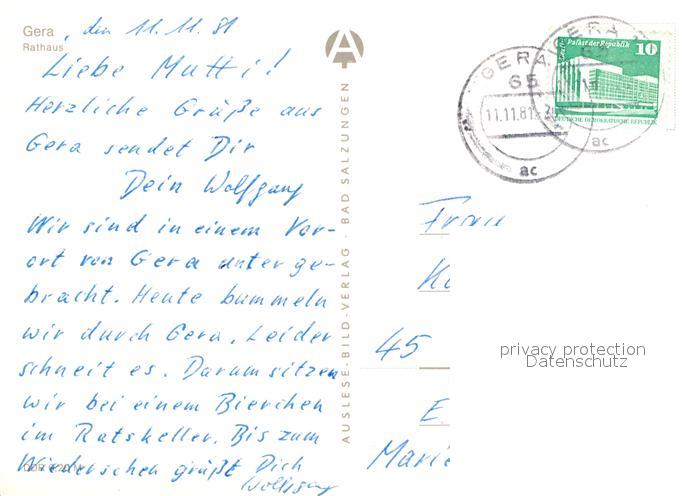 Gera, den 11.11.81
Rathaus
Liebe Mutti!
Herzliche Grüße aus
Gera sendet Dir
Dein Wolfgang
Wir sind in einem Vor-
ort von Gera unterge-
bracht. Heute bummeln
wir durch Gera. Leider
schneit es. Darum sitzen
wir bei einem Bierchen
im Ratskeller. Bis zum
Wiedersehen grüßt Dich
Wolfgang
AUSLESE-BILD-VERLAG · BAD SALZUNGEN
GERA
65
11.11.81
ac
GERA
65
ac
Palast der Republik 10
DEUTSCHE DEMOKRATISCHE REPUBLIK
Frau
45
E
Marie
privacy protection
Datenschutz